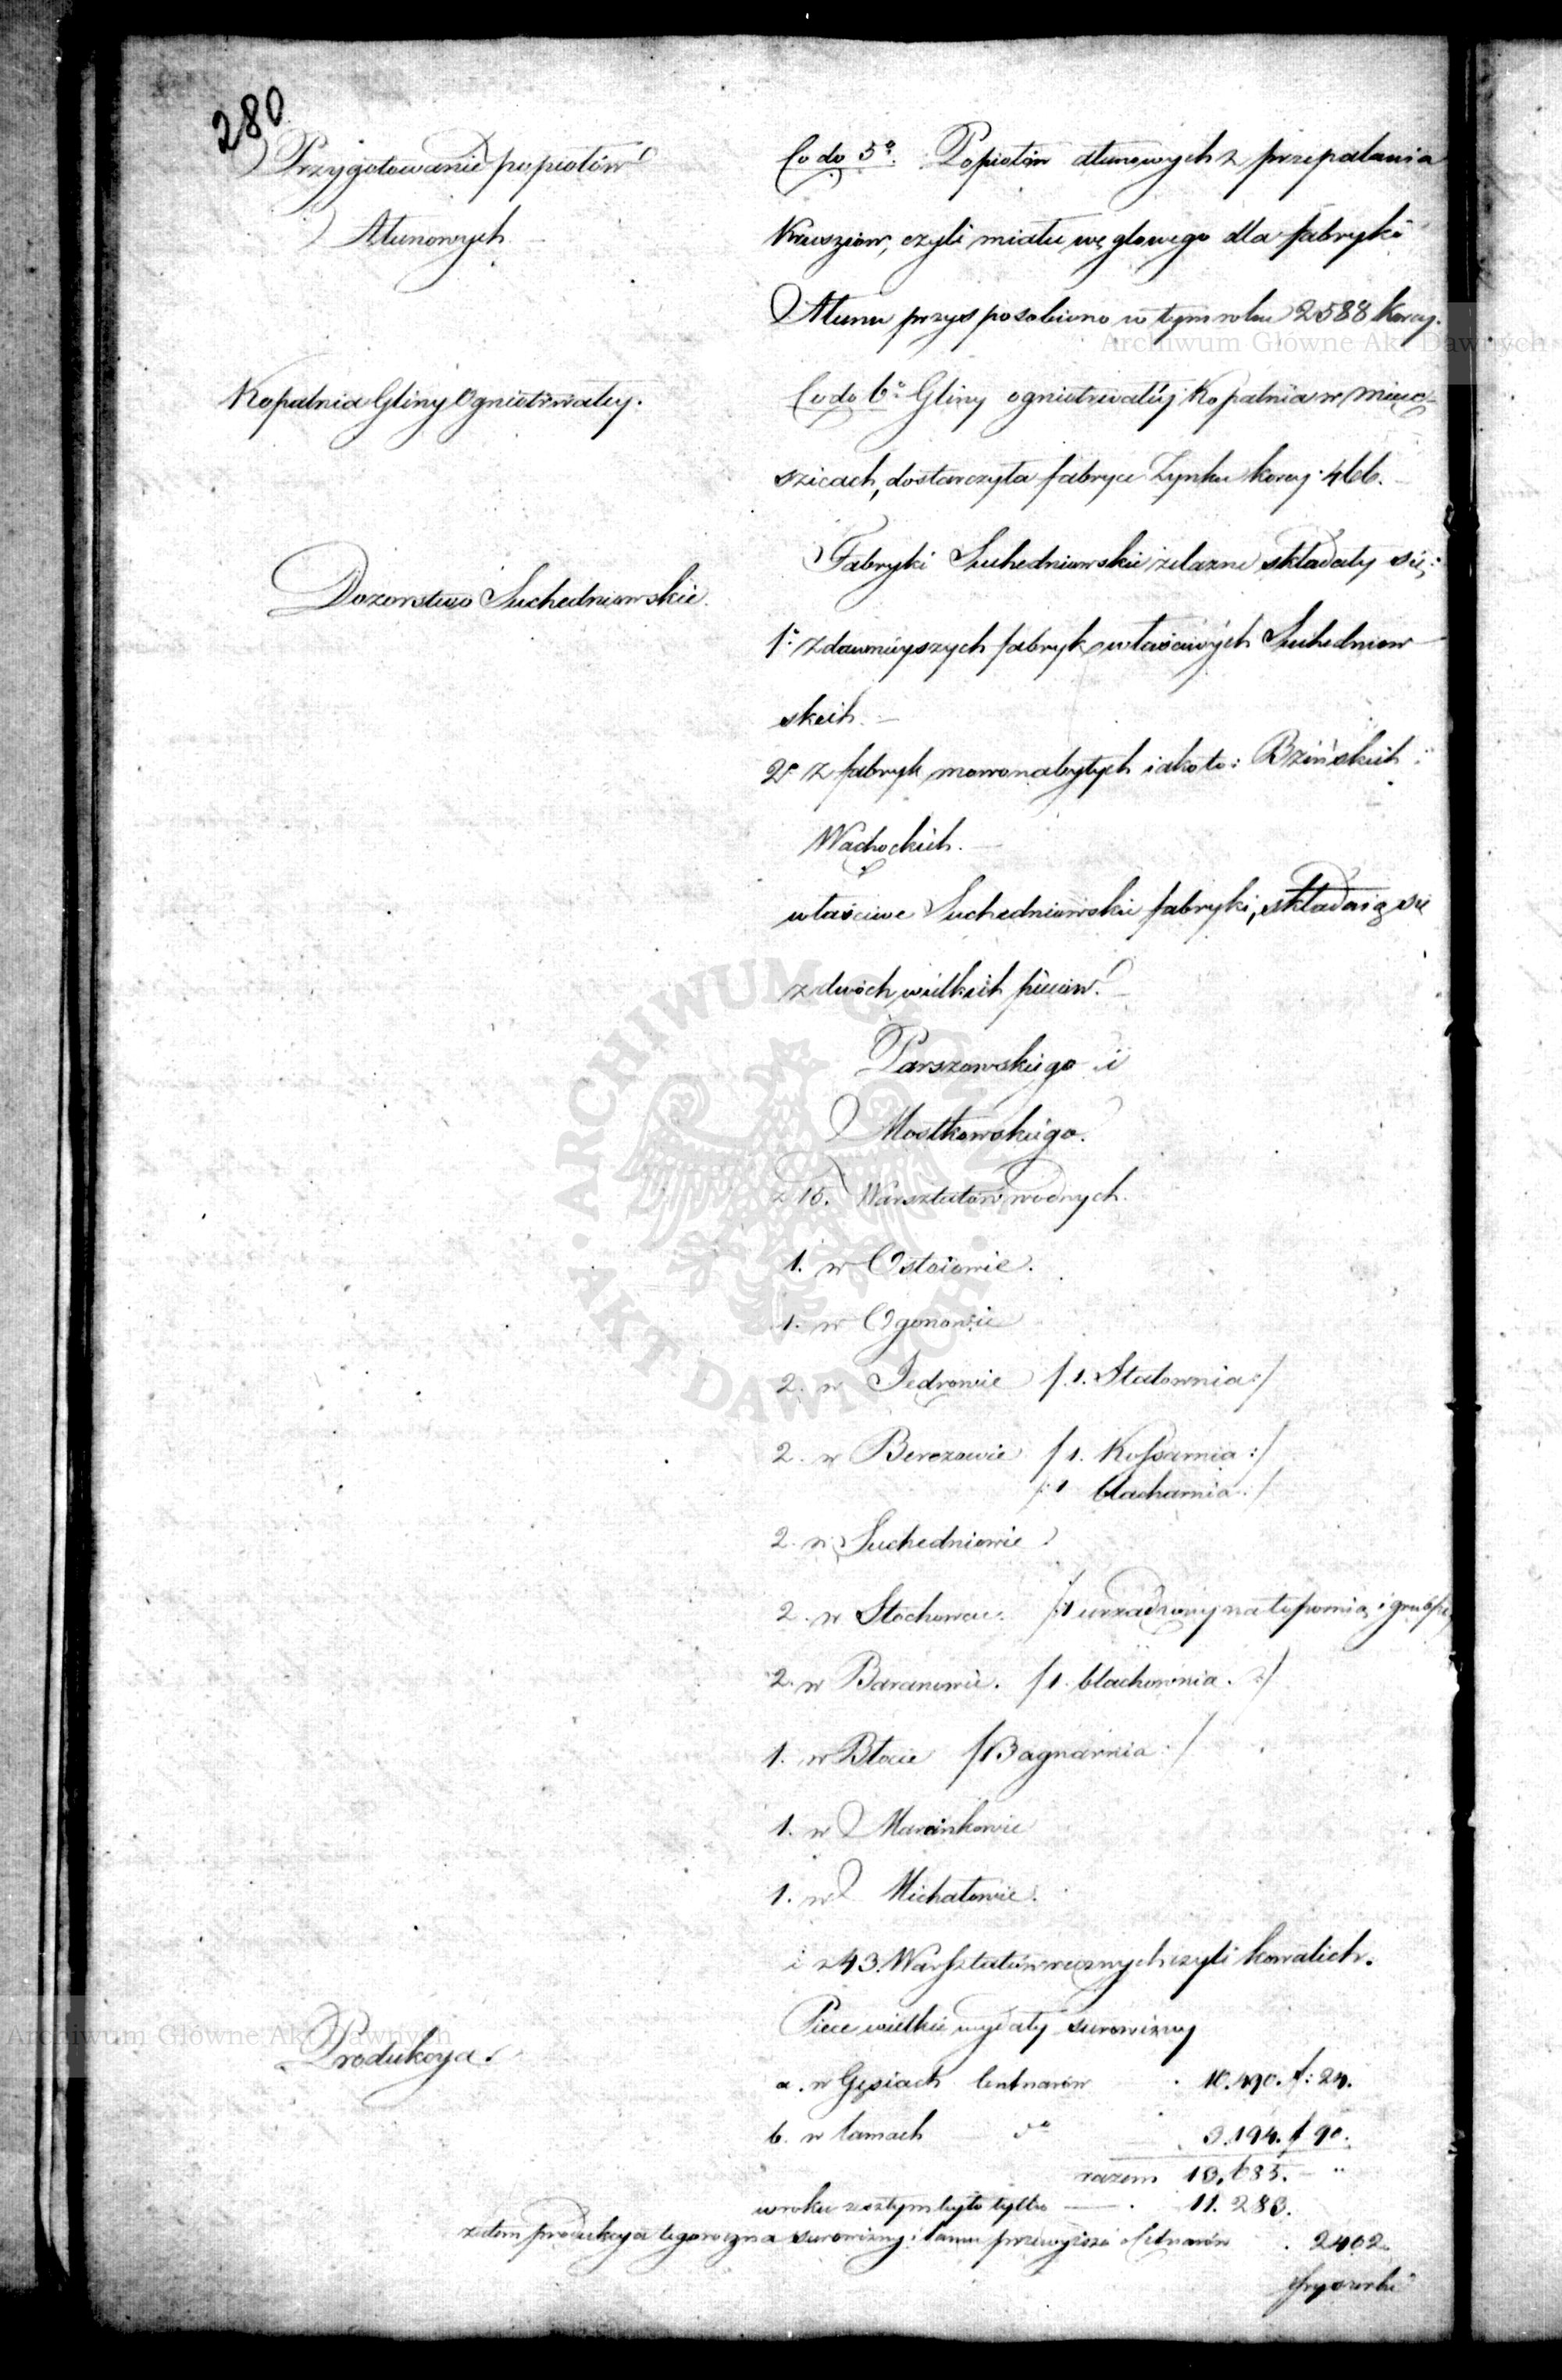 280
Przygotowanie popiołów
Ałunowych
Co do 5º. Popiołów ałunowych z przepalania
Kruszców, czyli miału węglowego dla fabryki
Ałunu przysposobiono w tym roku 2588 korcy.
Kopalnia Gliny Ogniotrwałey.
Co do 6º Gliny ogniotrwałéj Kopalnia w Mierz-
szicach, dostarczyła fabryce Zynku korcy 466.
Dozorstwo Suchedniowskie.
Fabryki Suchedniowskie żelazne składały się:
1º z dawnieyszych fabryk właściwych Suchedniow
skich.
2º z fabryk nowonabytych iako to: Bzińskich i
Wąchockich.
właściwe Suchedniowskie fabryki, składaią się
z dwóch wielkich pieców.
Parszowskiego i
Mostkowskiego.
z 15. Warsztatów wodnych.
1. w Ostoiowie.
1. w Ogonowie
2. w Jędrowie /:1. Stalownia:/
2. w Berezowie /:1. Kossarnia:/
/:1 blacharnia:/
2. w Suchedniowie
2. w Stochowcu. /:1 urządzony na topornią i
2. w Baranowie. /:1. blachownia.:/
1. w Błocie /:Bagnarnia:/
1. w Marcinkowie
1. w Michałowie.
i z 43. Warsztatów ręcznych czyli kowalich.
Produkcya.
Piece wielkie wydały surowizny
a. w Gęsiach Centnarów 10.490. f: 24.
b. w łamach dº 3.194. f 90.
razem 13,685. "
w roku zeszłym było tylko 11.283.
zatem produkcya tegoroczna surowizny i łamu przewyższa Cetnarów 2402.
Fryszerki
Archiwum Główne Akt Dawnych
Archiwum Główne Akt Dawnych
ARCHIWUM GŁÓWNE AKT DAWNYCH